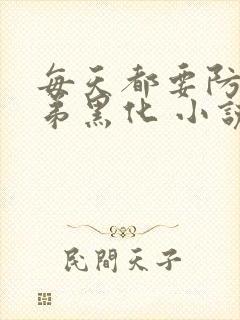 每天都要防
弟黑化 小說
民間天子